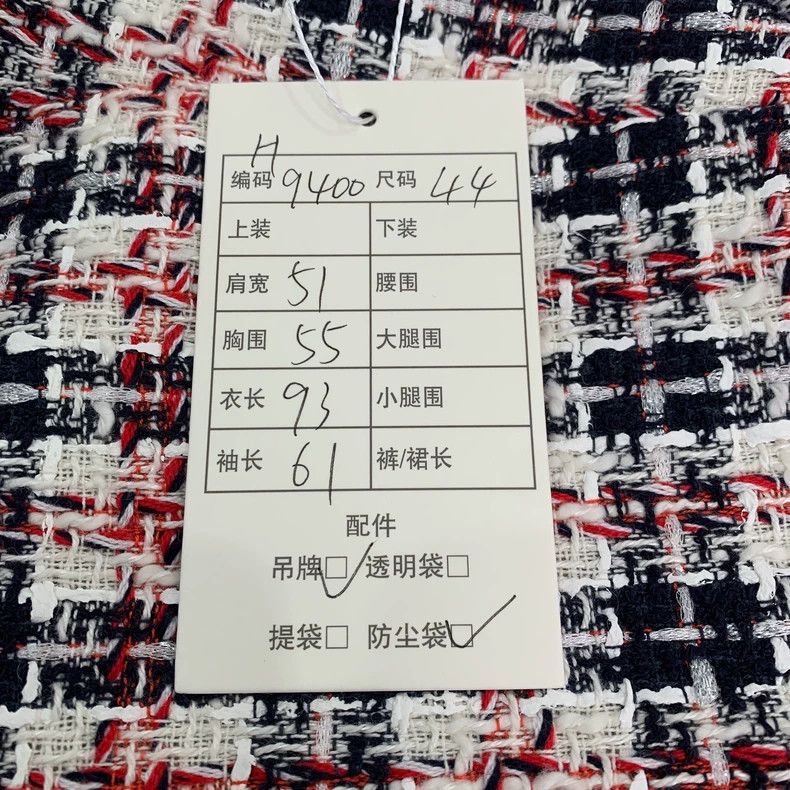 H
编码 9400 尺码 44
上装 下装
肩宽 51 腰围
胸围 55 大腿围
衣长 93 小腿围
袖长 61 裤/裙长
配件
吊牌☑ 透明袋□
提袋□ 防尘袋☑